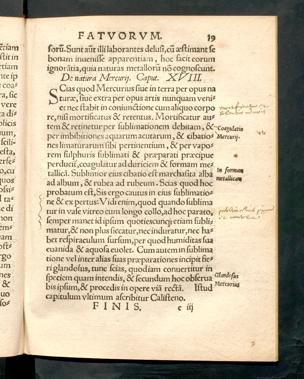 FATVORVM. 19
sorũ. Sunt aũt illi laborantes delusi, cũ æstimant se
bonam inuenisse apparentiam, hoc facit eorum
ignorãtia, quia naturas metallorũ nõ cognoscunt.
De natura Mercurij. Caput. XVIII.
Scias quod Mercurius siue in terra per opus na
turæ, siue extra per opus artis nunquam veni-
et nec stabit in coniunctione cum aliquo corpo-
re, nisi mortificatus & retentus. Mortificatur au-
tem & retinetur per sublimationem debitam, &
per imbibitiones aquarum acutarum, & cibatio
nes limaturarum sibi pertinentium, & per vapo-
rem sulphuris sublimati & præparati præcipue
perducti, coagulatur ad duriciem & formam me-
tallicã. Sublimior eius cibatio est marchasita alba
ad album, & rubea ad rubeum. Scias quod hoc
probatum est, Sis ergo cautus in eius sublimatio-
ne & expertus: Vidi enim, quod quando sublima
tur in vase vitreo cum longo collo, ad hoc parato,
semper manet id ipsum quotiescunq; etiam subli-
matur, & non plus siccatur, nec induratur, nec ha-
bet respiraculum sursum, per quod humiditas sua
euanida & aquosa euolet. Cum autem in sublima
tione vel inter alias suas præparationes incipit fie-
ri glandosus, tunc scias, quod iam conuertitur in
speciem quam intendis, & secundum hoc obserua
bis ipsum, & procedis in opere viã rectã. Istud
capitulum vltimum ascribitur Calisteno.
FINIS.
c iij
Coagulatio
Mercurij.
In formam
metallicam
Glandosus
Mercurius